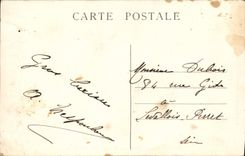 CARTE POSTALE
Gros baisers
A
Monsieur Dubois
94 rue Gide
à
Levallois-Perret
Seine